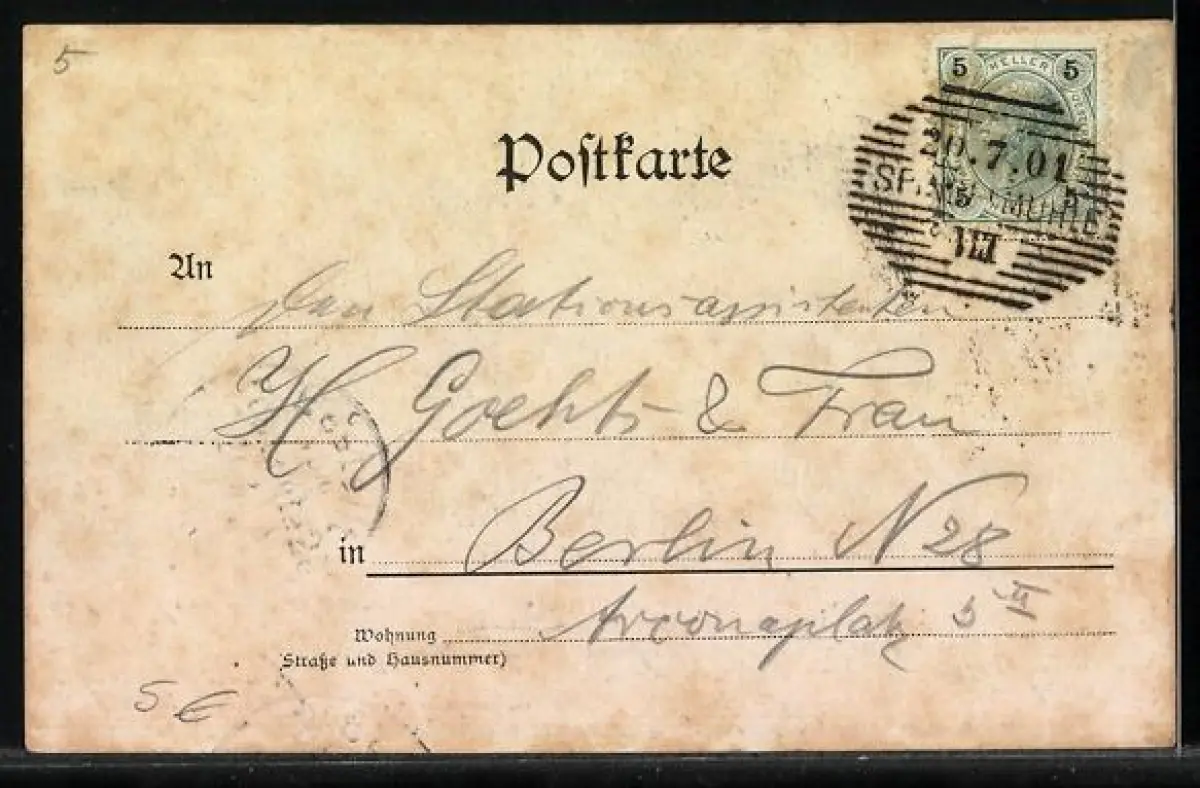 5
5 HELLER 5
Postkarte
20.7.01
MÜHLE
5
III
An
den Stationsassistenten
H Goehts & Frau
in Berlin N 28
Wohnung Arconaplatz 5 II
Straße und Hausnummer)
5 €